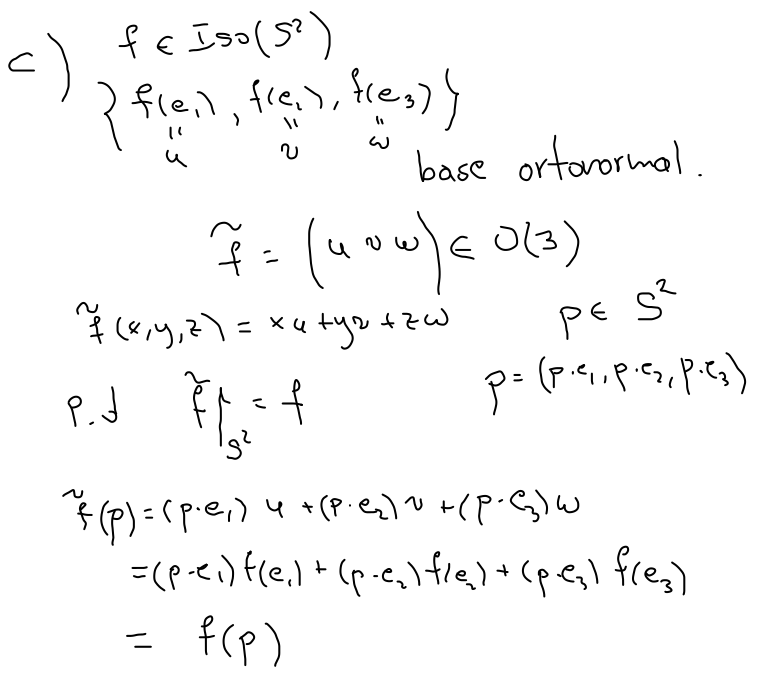 c) f ∈ Iso(S²)
{f(e₁), f(e₂), f(e₃)}
" " "
u v w
base ortonormal.
f̃ = (u v w) ∈ O(3)
f̃(x,y,z) = xu + yv + zw
p ∈ S²
p = (p·e₁, p·e₂, p·e₃)
P.d f̃|S² = f
f̃(p) = (p·e₁) u + (p·e₂) v + (p·e₃) w
= (p·e₁) f(e₁) + (p·e₂) f(e₂) + (p·e₃) f(e₃)
= f(p)